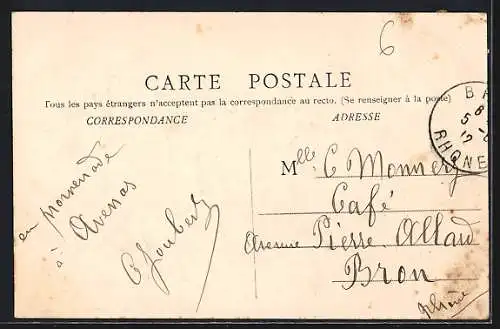 6
CARTE POSTALE
Tous les pays étrangers n'acceptent pas la correspondance au recto. (Se renseigner à la poste)
CORRESPONDANCE
ADRESSE
en promenade
à Avenas
C Joubert
Mlle C Monnery
Café
Avenue Pierre Allard
Bron
Rhône
BA
8
5
12
RHONE